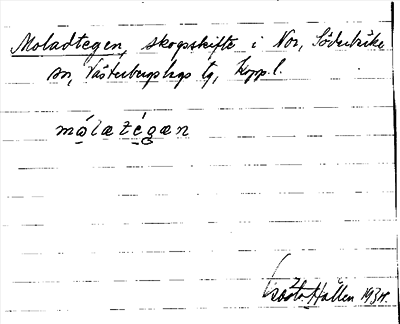 Moladtegen, skogsskifte i Nor, Söderbärke
sn, Västerbergslags tg, Kopp. l.
mólatégæn
Gösta Hallen 1934.